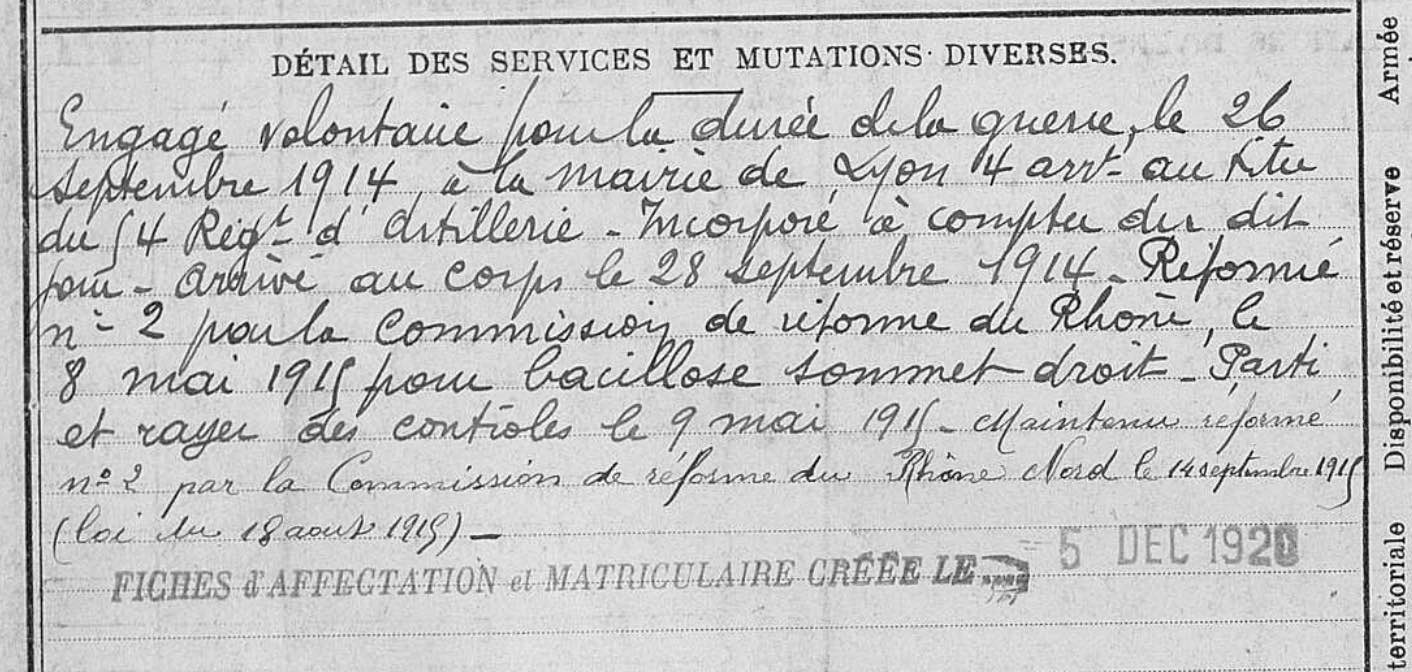 DÉTAIL DES SERVICES ET MUTATIONS DIVERSES.
Engagé volontaire pour la durée de la guerre, le 26
septembre 1914, à la mairie de Lyon 4 arrt au titre
du 54 Régt d'Artillerie - Incorporé à compter du dit
jour - arrivé au corps le 28 septembre 1914 - Réformé
n° 2 par la Commission de réforme du Rhône, le
8 mai 1915 pour bacillose sommet droit - Parti
et rayer des contrôles le 9 mai 1915 - Maintenu réformé
n° 2 par la Commission de réforme du Rhône Nord le 14 septembre 1915
(loi du 18 aout 1915) —
FICHES d'AFFECTATION et MATRICULAIRE CRÉÉE LE 5 DEC 1920
Armée
Disponibilité et réserve
territoriale